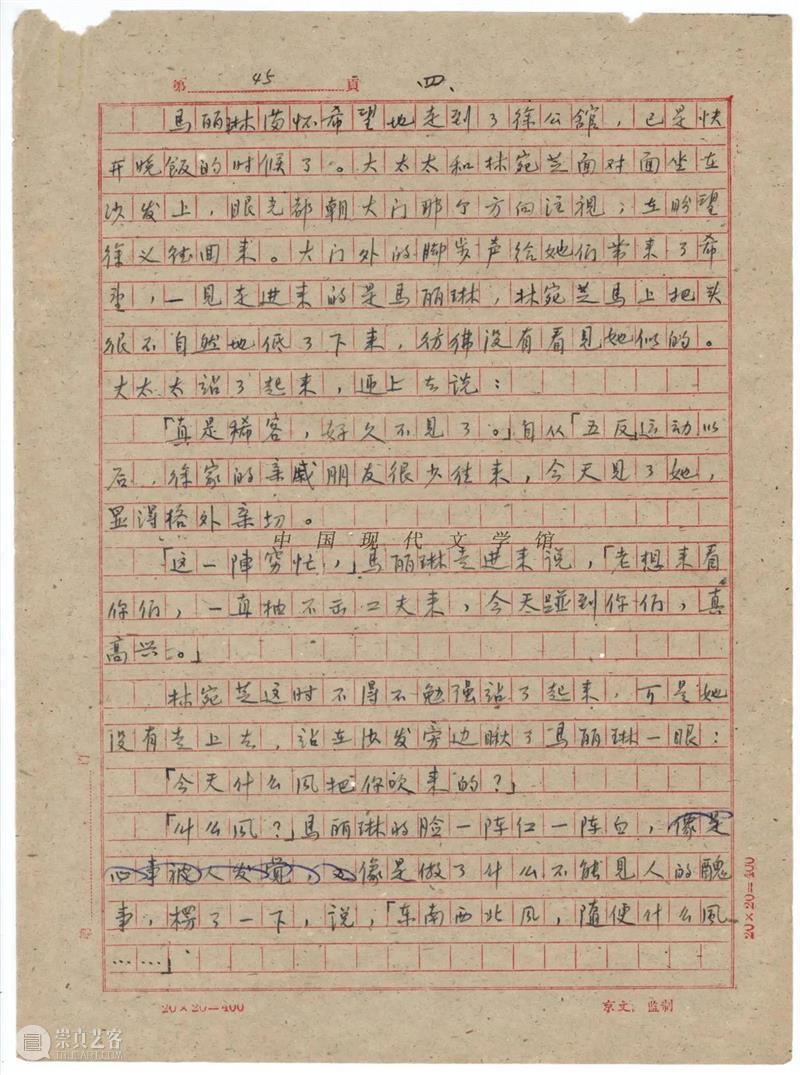 第 45 頁 四、
馬丽琳满怀希望地走到了徐公舘，已是快
开晚飯的时候了。大太太和林宛芝面对面坐在
沙发上，眼光都朝大门那个方向注視；在盼望
徐义德回来。大门外的脚步声给她们带来了希
望，一見走进来的是馬丽琳，林宛芝馬上把头
很不自然地低了下来，彷彿没有看見她似的。
大太太站了起来，迎上去说：
「真是稀客，好久不見了。」自从「五反」运动以
后，徐家的亲戚朋友很少往来，今天見了她，
显得格外亲切。
中国现代文学馆
「这一陣穷忙，」馬丽琳走进来说，「老想来看
你们，一直抽不出工夫来，今天碰到你们，真
高兴。」
林宛芝这时不得不勉强站了起来，可是她
没有走上去，站在沙发旁边瞅了馬丽琳一眼：
「今天什么风把你吹来的？」
「什么风？」馬丽琳的脸一阵红一阵白，像是
心事被人发覚，又像是做了什么不能见人的醜
事，楞了一下，说，「东南西北风，隨便什么風
……」
20×20=400
20×20=400
京文．监制
崇真艺客
TRUEART.COM